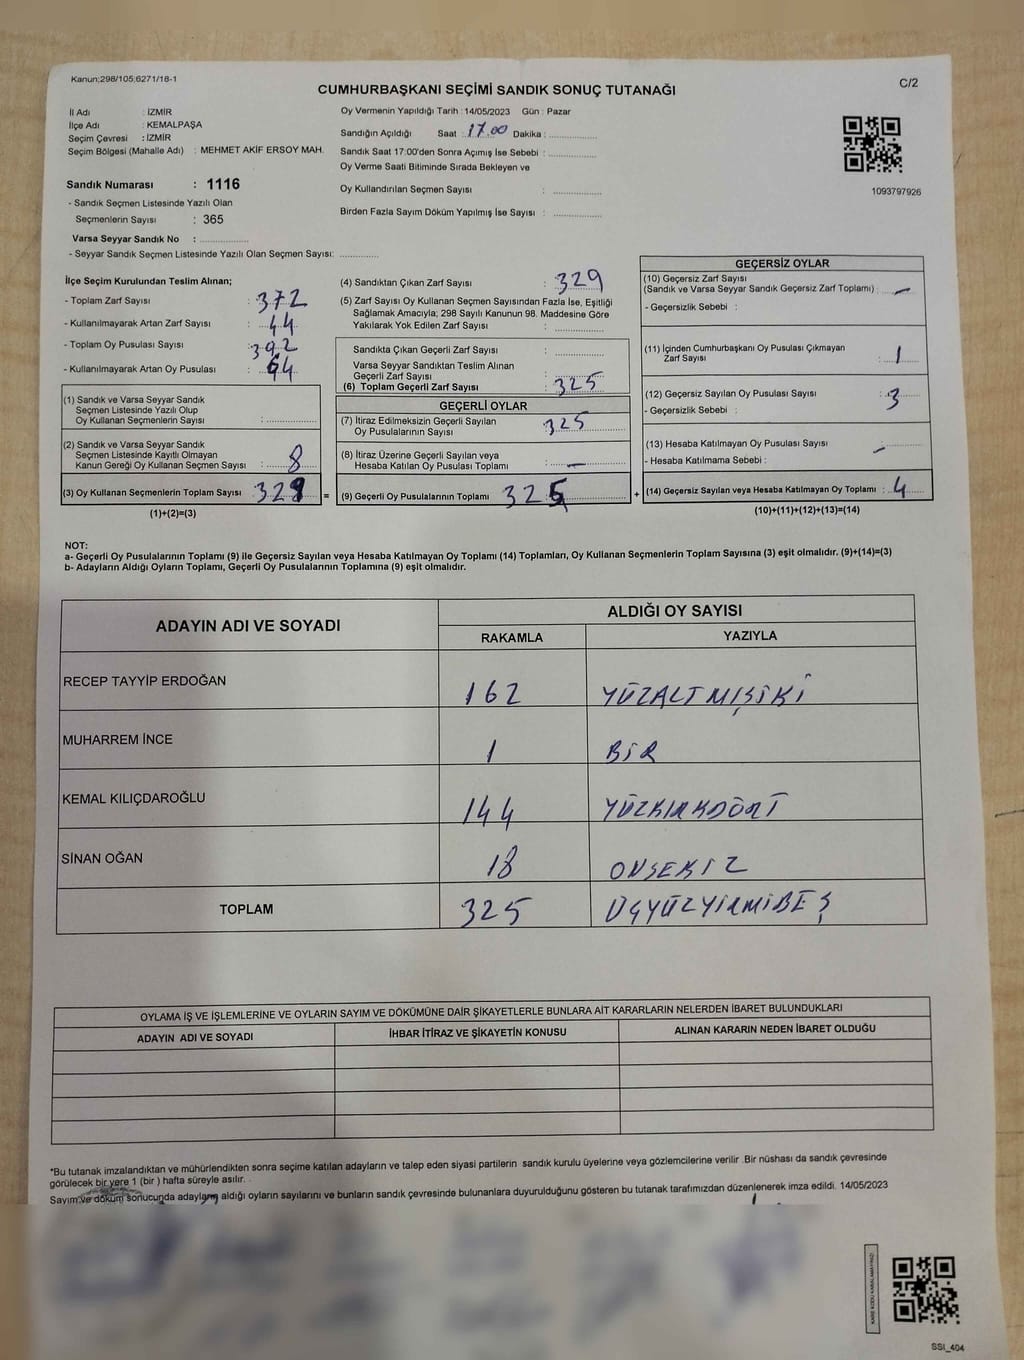 Kanun;298/105;6271/18-1
C/2
CUMHURBAŞKANI SEÇİMİ SANDIK SONUÇ TUTANAĞI
İl Adı : İZMİR
İlçe Adı : KEMALPAŞA
Seçim Çevresi : İZMİR
Seçim Bölgesi (Mahalle Adı) : MEHMET AKİF ERSOY MAH.
Sandık Numarası : 1116
- Sandık Seçmen Listesinde Yazılı Olan
Seçmenlerin Sayısı : 365
Varsa Seyyar Sandık No : ................
- Seyyar Sandık Seçmen Listesinde Yazılı Olan Seçmen Sayısı: ............
Oy Vermenin Yapıldığı Tarih : 14/05/2023 Gün : Pazar
Sandığın Açıldığı Saat : 17.00 Dakika : ...............
Sandık Saat 17:00'den Sonra Açımış İse Sebebi : ...............
Oy Verme Saati Bitiminde Sırada Bekleyen ve
Oy Kullandırılan Seçmen Sayısı : ...............
Birden Fazla Sayım Döküm Yapılmış İse Sayısı : ...............
1093797926
İlçe Seçim Kurulundan Teslim Alınan;
- Toplam Zarf Sayısı : 372
- Kullanılmayarak Artan Zarf Sayısı : 44
- Toplam Oy Pusulası Sayısı : 392
- Kullanılmayarak Artan Oy Pusulası : 64
(1) Sandık ve Varsa Seyyar Sandık
Seçmen Listesinde Yazılı Olup
Oy Kullanan Seçmenlerin Sayısı : ...............
(2) Sandık ve Varsa Seyyar Sandık
Seçmen Listesinde Kayıtlı Olmayan
Kanun Gereği Oy Kullanan Seçmen Sayısı : 8
(3) Oy Kullanan Seçmenlerin Toplam Sayısı : 329 =
(1)+(2)=(3)
(4) Sandıktan Çıkan Zarf Sayısı : 329
(5) Zarf Sayısı Oy Kullanan Seçmen Sayısından Fazla İse, Eşitliği
Sağlamak Amacıyla; 298 Sayılı Kanunun 98. Maddesine Göre
Yakılarak Yok Edilen Zarf Sayısı : ...............
Sandıkta Çıkan Geçerli Zarf Sayısı : ...............
Varsa Seyyar Sandıktan Teslim Alınan
Geçerli Zarf Sayısı : ...............
(6) Toplam Geçerli Zarf Sayısı : 325
GEÇERLİ OYLAR
(7) İtiraz Edilmeksizin Geçerli Sayılan
Oy Pusulalarının Sayısı : 325
(8) İtiraz Üzerine Geçerli Sayılan veya
Hesaba Katılan Oy Pusulası Toplamı : —
(9) Geçerli Oy Pusulalarının Toplamı : 325 +
GEÇERSİZ OYLAR
(10) Geçersiz Zarf Sayısı
(Sandık ve Varsa Seyyar Sandık Geçersiz Zarf Toplamı) : —
- Geçersizlik Sebebi :
(11) İçinden Cumhurbaşkanı Oy Pusulası Çıkmayan
Zarf Sayısı : 1
(12) Geçersiz Sayılan Oy Pusulası Sayısı : 3
- Geçersizlik Sebebi :
(13) Hesaba Katılmayan Oy Pusulası Sayısı : —
- Hesaba Katılmama Sebebi :
(14) Geçersiz Sayılan veya Hesaba Katılmayan Oy Toplamı : 4
(10)+(11)+(12)+(13)=(14)
NOT:
a- Geçerli Oy Pusulalarının Toplamı (9) ile Geçersiz Sayılan veya Hesaba Katılmayan Oy Toplamı (14) Toplamları, Oy Kullanan Seçmenlerin Toplam Sayısına (3) eşit olmalıdır. (9)+(14)=(3)
b- Adayların Aldığı Oyların Toplamı, Geçerli Oy Pusulalarının Toplamına (9) eşit olmalıdır.
ADAYIN ADI VE SOYADI
ALDIĞI OY SAYISI
RAKAMLA YAZIYLA
RECEP TAYYİP ERDOĞAN 162 YÜZALTMIŞİKİ
MUHARREM İNCE 1 BİR
KEMAL KILIÇDAROĞLU 144 YÜZKIRKDÖRT
SİNAN OĞAN 18 ONSEKİZ
TOPLAM 325 ÜÇYÜZYİRMİBEŞ
OYLAMA İŞ VE İŞLEMLERİNE VE OYLARIN SAYIM VE DÖKÜMÜNE DAİR ŞİKAYETLERLE BUNLARA AİT KARARLARIN NELERDEN İBARET BULUNDUKLARI
ADAYIN ADI VE SOYADI İHBAR İTİRAZ VE ŞİKAYETİN KONUSU ALINAN KARARIN NEDEN İBARET OLDUĞU
*Bu tutanak imzalandıktan ve mühürlendikten sonra seçime katılan adayların ve talep eden siyasi partilerin sandık kurulu üyelerine veya gözlemcilerine verilir .Bir nüshası da sandık çevresinde
görülecek bir yere 1 (bir ) hafta süreyle asılır. .
Sayım ve döküm sonucunda adayların aldığı oyların sayılarını ve bunların sandık çevresinde bulunanlara duyurulduğunu gösteren bu tutanak tarafımızdan düzenlenerek imza edildi. 14/05/2023
KARE KODU KARALAMAYINIZ!
SSI_404